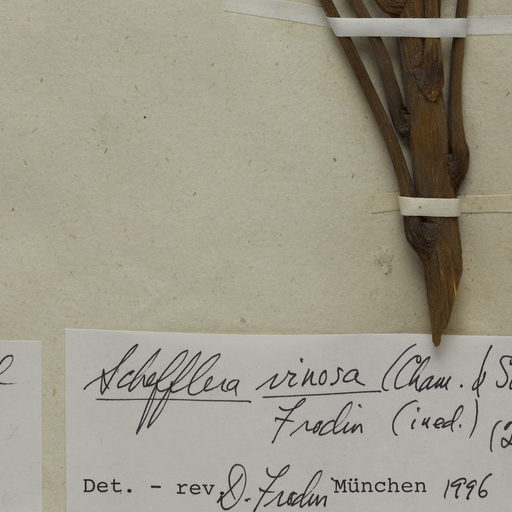 Schefflera vinosa (Cham. &
Frodin (ined.)
Det. - rev. D. Frodin München 1996